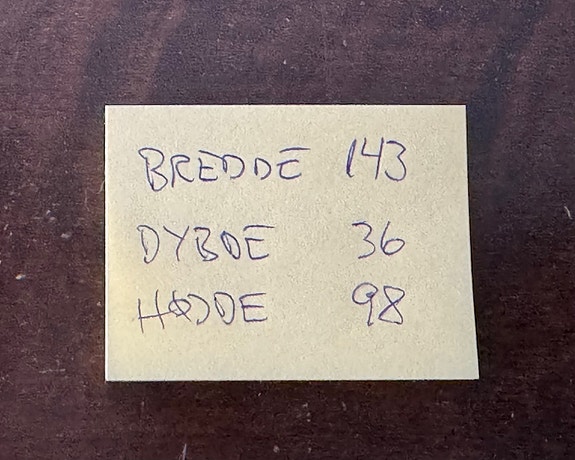 BREDDE 143
DYBDE 36
HØDDE 98